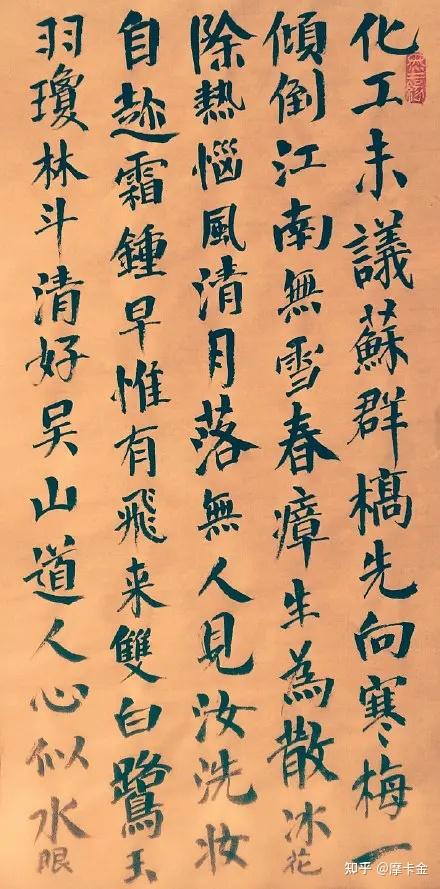 化工未議蘇群槁先向寒梅一
傾倒江南無雪春瘴生為散冰花
除熱惱風清月落無人見汝洗妆
自趁霜鍾早惟有飛来雙白鷺玉
羽瓊林斗清好吴山道人心似水眼
知乎 @摩卡金